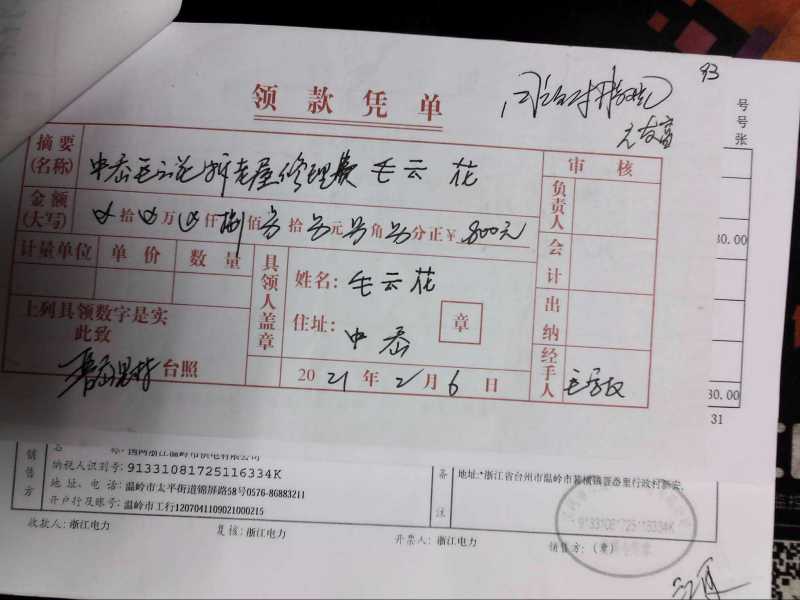 93
领款凭单
元发富
号
号
张
摘要
(名称)
中岙毛云花拆老屋修理费 毛云花
审核
金额
(大写)
拾 万 仟捌佰 拾 元 角 分正¥ 800元
负责人
会计
出纳
经手人
30.00
计量单位 单价 数量
具领人盖章
姓名: 毛云花
住址: 中岙
章
上列具领数字是实
此致
台照
2021年2月6日
30.00
31
销售方
称: 国网浙江温岭市供电有限公司
纳税人识别号: 91331081725116334K
地址、电话: 温岭市太平街道锦屏路58号0576-86883211
开户行及账号: 温岭市工行1207041109021000215
备注
地址:*浙江省台州市温岭市箬横镇晋岙里行政村新安,
91331081725116334K
收款人: 浙江电力
复核: 浙江电力
开票人: 浙江电力
销售方: (章)